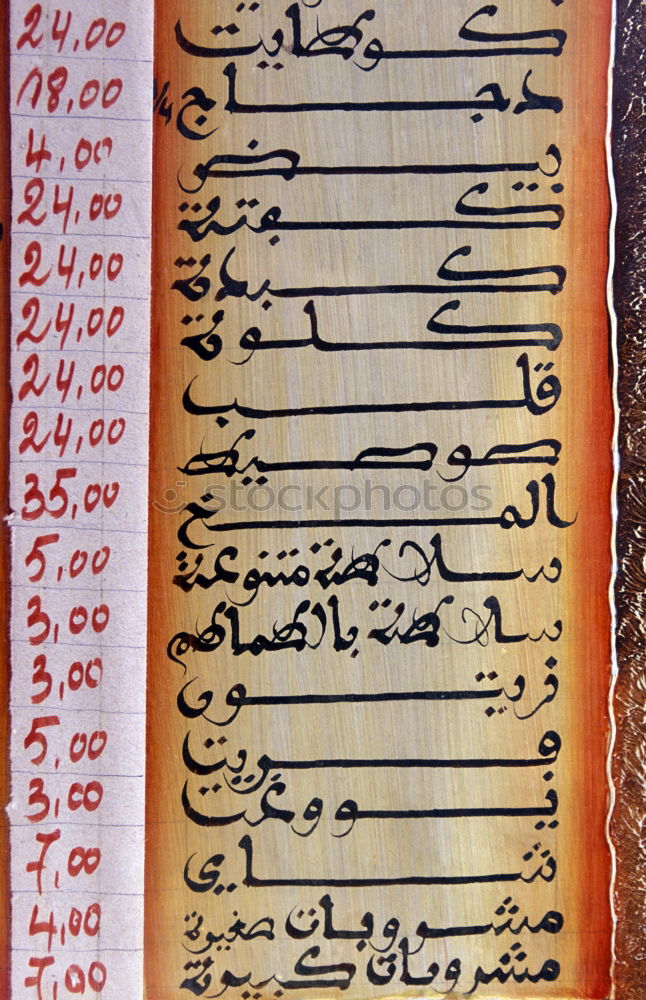 كوطليت 24,00
دجاج 1/4 18,00
بيض 4,00
كفتة 24,00
كبدة 24,00
كلوة 24,00
قلب 24,00
صوصيط 24,00
المخ 35,00
سلاطة متنوعة 5,00
سلاطة بالطماطم 3,00
زيتون 3,00
فريت 5,00
3,00
شاي 7,00
مشروبات صغيرة 4,00
مشروبات كبيرة 7,00
stockphotos